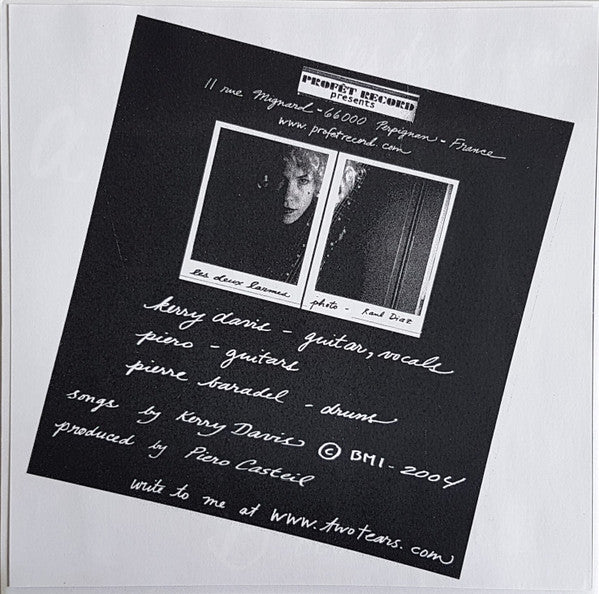 PROFET RECORD
presents
11 rue Mignard - 66000 Perpignan - France
www.profetrecord.com
les deux larmes
photo - Raul Diaz
kerry davis - guitar, vocals
piero - guitars
pierre baradel - drums
songs by Kerry Davis © BMI - 2004
produced by Piero Casteil
write to me at www.twotears.com